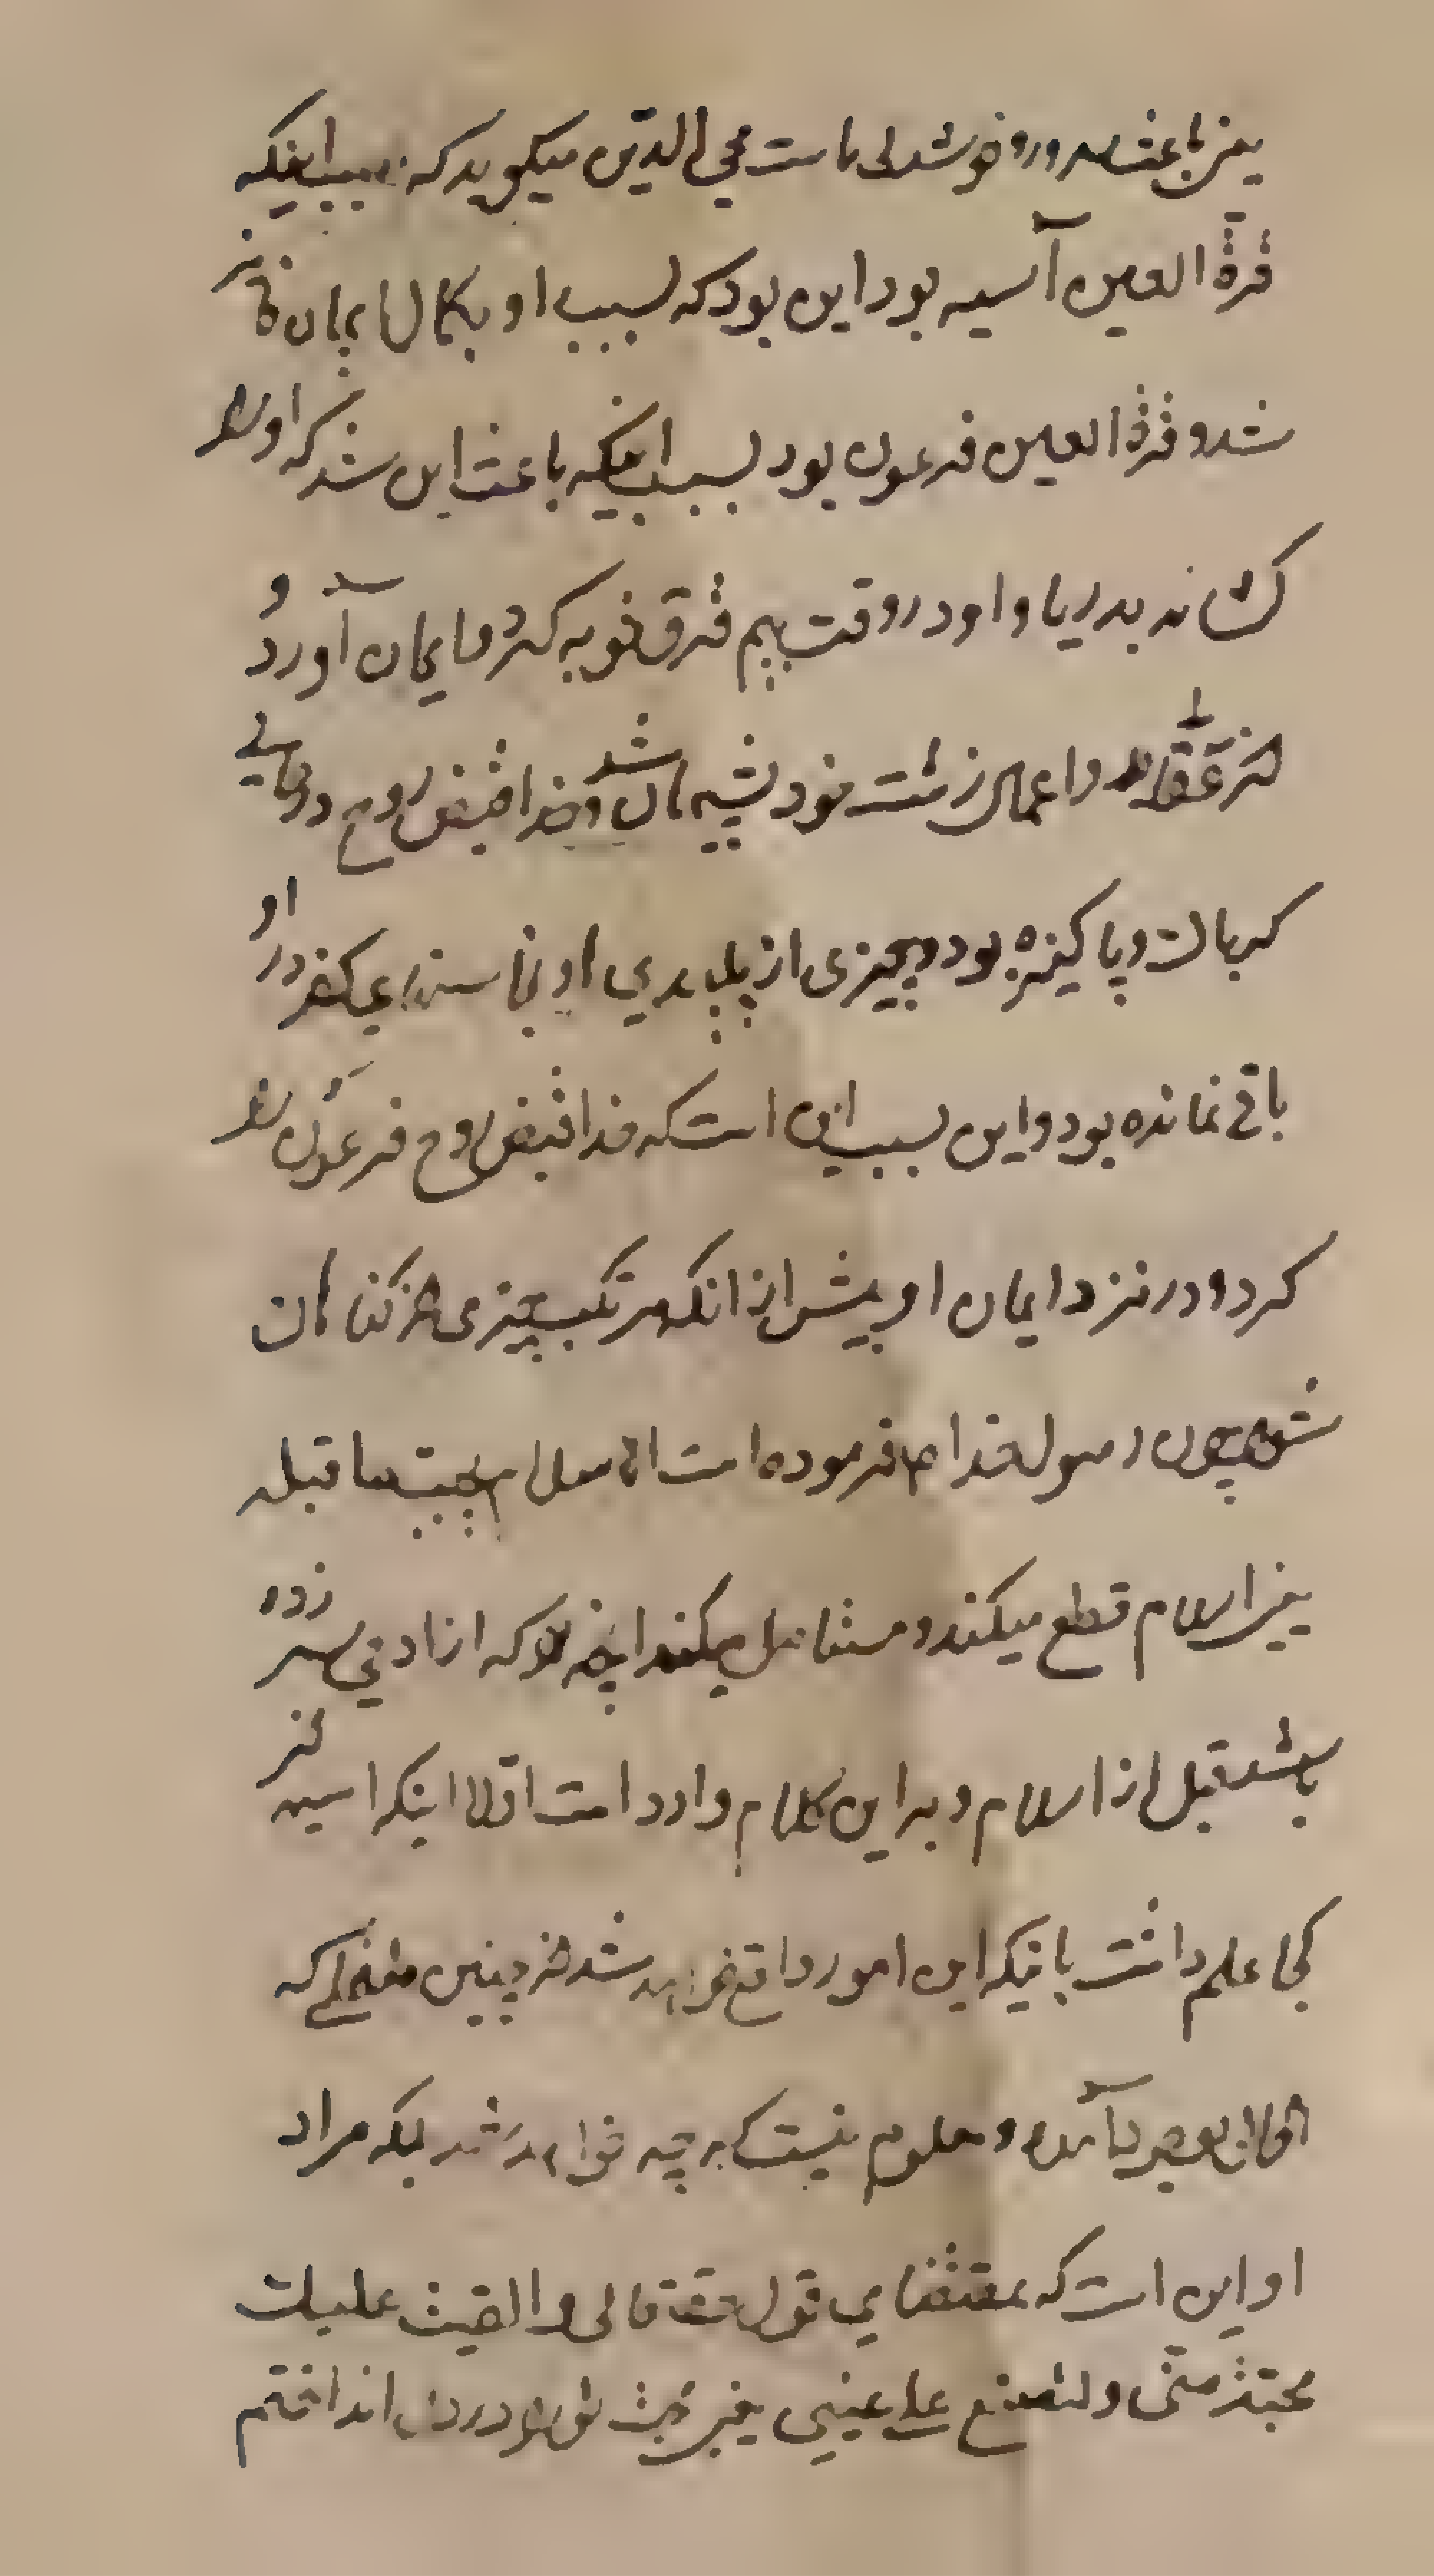 یعنی باعث سرور و خوشدلی ماست محی الدین میکوید که بسبب اینکه
قرة العین آسیه بود این بود که بسبب او بکمال ایمان فائز
شد و قرة العین فرعون بود بسبب اینکه باعث این شد که او را
کشاند بدریا و او در وقت بیم غرق توبه کرد و ایمان آورد و
از عقاید و اعمال زشت خود پشیمان شد و خدا قبض روح او در حالی
که پاک و پاکیزه بود و چیزی از پلیدی او یعنی کفر در او
باقی نمانده بود و این بسبب این است که خدا قبض روح فرعون را
کرد در نزد ایمان او پیش از انکه مرتکب چیزی از کناهان
شود چون رسول خدا ص فرموده است الاسلام یجب ما قبله
یعنی اسلام قطع میکند و مستاصل میکند انچه را که از ادمی سر زده
باشد قبل از اسلام و بر این کلام وارد است اولا اینکه اسیه از
کجا علم داشت باینکه این امور واقع خواهد شد از چنین طفلی که
الان بوجود آمده و معلوم نیست که چه خواهد شد بلکه مراد
او این است که بمقتضای قول حقتعالی و القیت علیک
محبة منی و لتصنع علی عینی یعنی محبت تو را در دل انداختم